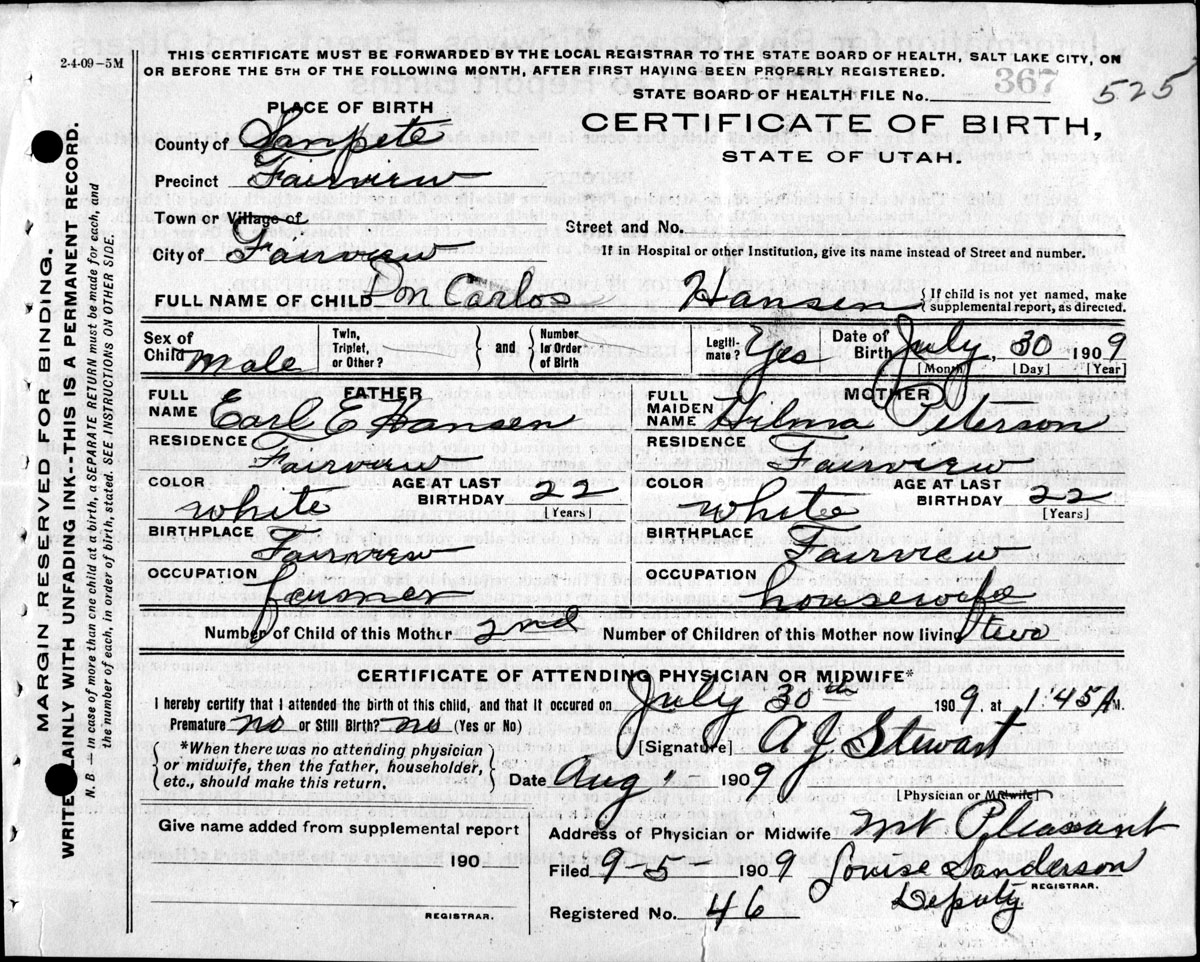 2-4-09-5M
THIS CERTIFICATE MUST BE FORWARDED BY THE LOCAL REGISTRAR TO THE STATE BOARD OF HEALTH, SALT LAKE CITY, ON
OR BEFORE THE 5TH OF THE FOLLOWING MONTH, AFTER FIRST HAVING BEEN PROPERLY REGISTERED.
367
525
STATE BOARD OF HEALTH FILE No.
PLACE OF BIRTH
CERTIFICATE OF BIRTH,
STATE OF UTAH.
County of Sanpete
Precinct Fairview
Town or Village of
City of Fairview
Street and No.
If in Hospital or other Institution, give its name instead of Street and number.
FULL NAME OF CHILD Don Carlos Hansen { If child is not yet named, make supplemental report, as directed.
Sex of Child Male Twin, Triplet, or Other? } and { Number, In Order of Birth Legiti- mate? Yes Date of Birth July, 30 1909
[Month] [Day] [Year]
FATHER MOTHER
FULL NAME Earl E Hansen FULL MAIDEN NAME Hilma Peterson
RESIDENCE Fairview RESIDENCE Fairview
COLOR white AGE AT LAST BIRTHDAY 22 [Years] COLOR white AGE AT LAST BIRTHDAY 22 [Years]
BIRTHPLACE Fairview BIRTHPLACE Fairview
OCCUPATION farmer OCCUPATION housewife
Number of Child of this Mother 2nd Number of Children of this Mother now living two
CERTIFICATE OF ATTENDING PHYSICIAN OR MIDWIFE*
I hereby certify that I attended the birth of this child, and that it occured on July 30th 1909, at 1:45 A M.
Premature no or Still Birth? no (Yes or No)
[Signature] A J Stewart
{ *When there was no attending physician
or midwife, then the father, householder,
etc., should make this return. }
Date Aug 1 - 1909
[Physician or Midwife]
Give name added from supplemental report
190
REGISTRAR.
Address of Physician or Midwife Mt Pleasant
Filed 9-5- 1909 Louise Sanderson
REGISTRAR.
Deputy
Registered No. 46
MARGIN RESERVED FOR BINDING.
WRITE PLAINLY WITH UNFADING INK--THIS IS A PERMANENT RECORD.
N. B. — in case of more than one child at a birth, a SEPARATE RETURN must be made for each, and
the number of each, in order of birth, stated. SEE INSTRUCTIONS ON OTHER SIDE.